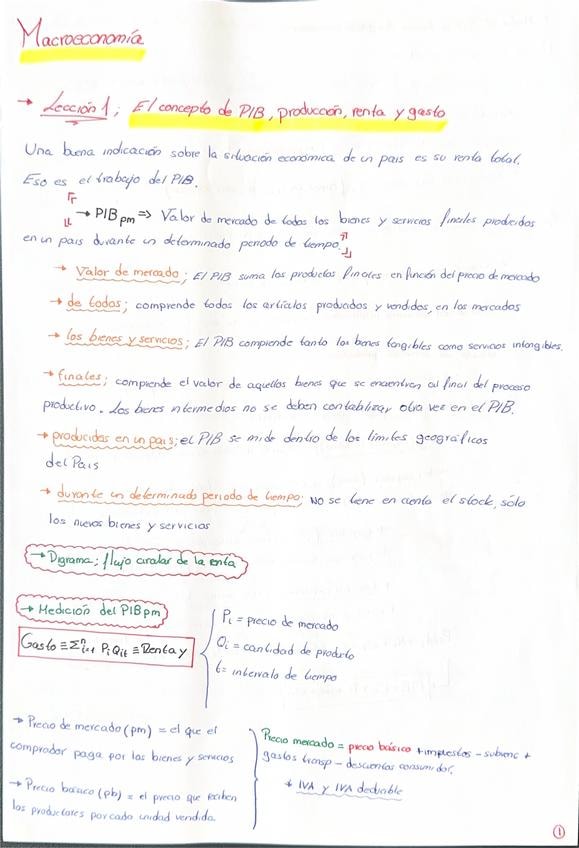 Macroeconomía
→ Lección 1; El concepto de PIB, producción, renta y gasto
Una buena indicación sobre la situación económica de un pais es su renta total.
Eso es el trabajo del PIB.
→ PIB pm => Valor de mercado de todos los bienes y servicios finales producidos
en un pais durante un determinado periodo de tiempo.
→ Valor de mercado; El PIB suma los productos finales en función del precio de mercado
→ de todos; comprende todos los artículos producidos y vendidos, en los mercados
→ los bienes y servicios; El PIB comprende tanto los bienes tangibles como servicios intangibles.
→ finales; comprende el valor de aquellos bienes que se encuentran al final del proceso
productivo. Los bienes intermedios no se deben contabilizar otra vez en el PIB.
→ producidas en un pais; el PIB se mide dentro de los límites geográficos
del País
→ durante un determinado periodo de tiempo; NO se tiene en cuenta el stock, sólo
los nuevos bienes y servicios
→ Digrama; flujo circular de la renta
→ Medición del PIBpm
Gasto ≡ Σⁿᵢ₌₁ Pᵢ Qᵢₜ ≡ Renta y
Pᵢ = precio de mercado
Qᵢ = cantidad de producto
t = intervalo de tiempo
→ Precio de mercado (pm) = el que el
comprador paga por los bienes y servicios
→ Precio básico (pb) = el precio que reciben
los productores por cada unidad vendida.
Precio mercado = precio básico + impuestos - subvenc +
gastos transp - descuentos consumidor.
* IVA y IVA deducible
1